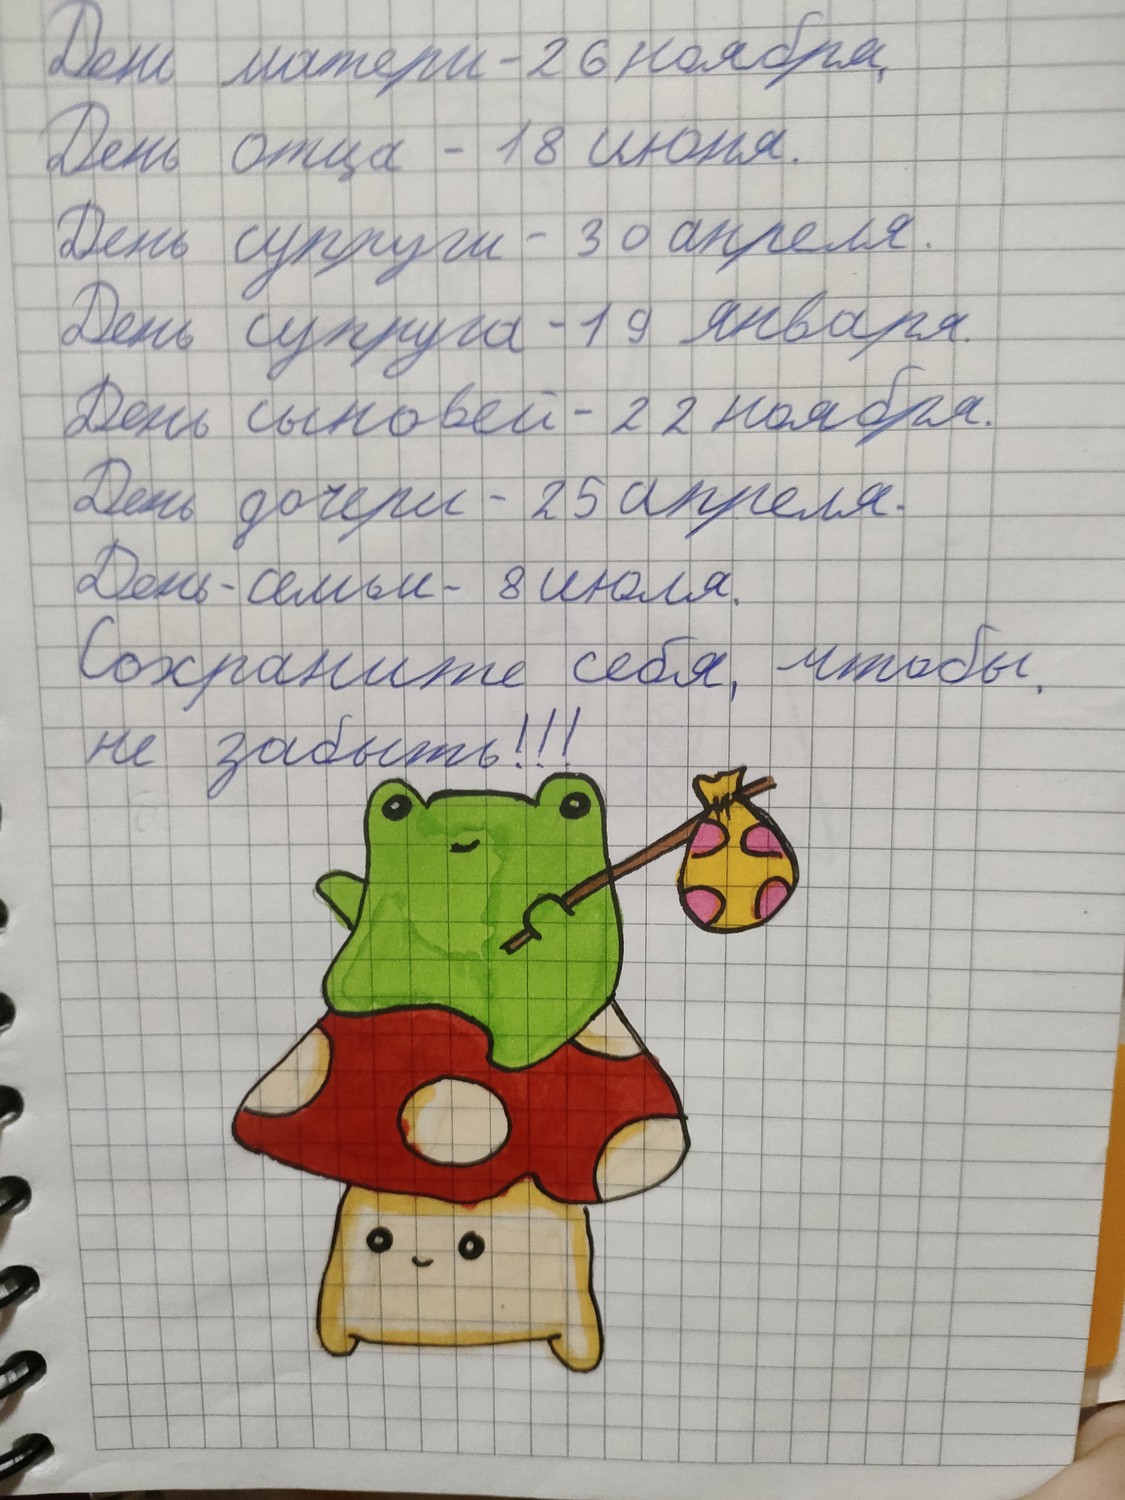 День матери - 26 ноября,
День отца - 18 июня.
День супруги - 30 апреля.
День супруга - 19 января.
День сыновей - 22 ноября.
День дочери - 25 апреля.
День-семьи - 8 июля.
Сохраните себя, чтобы,
не забыть!!!